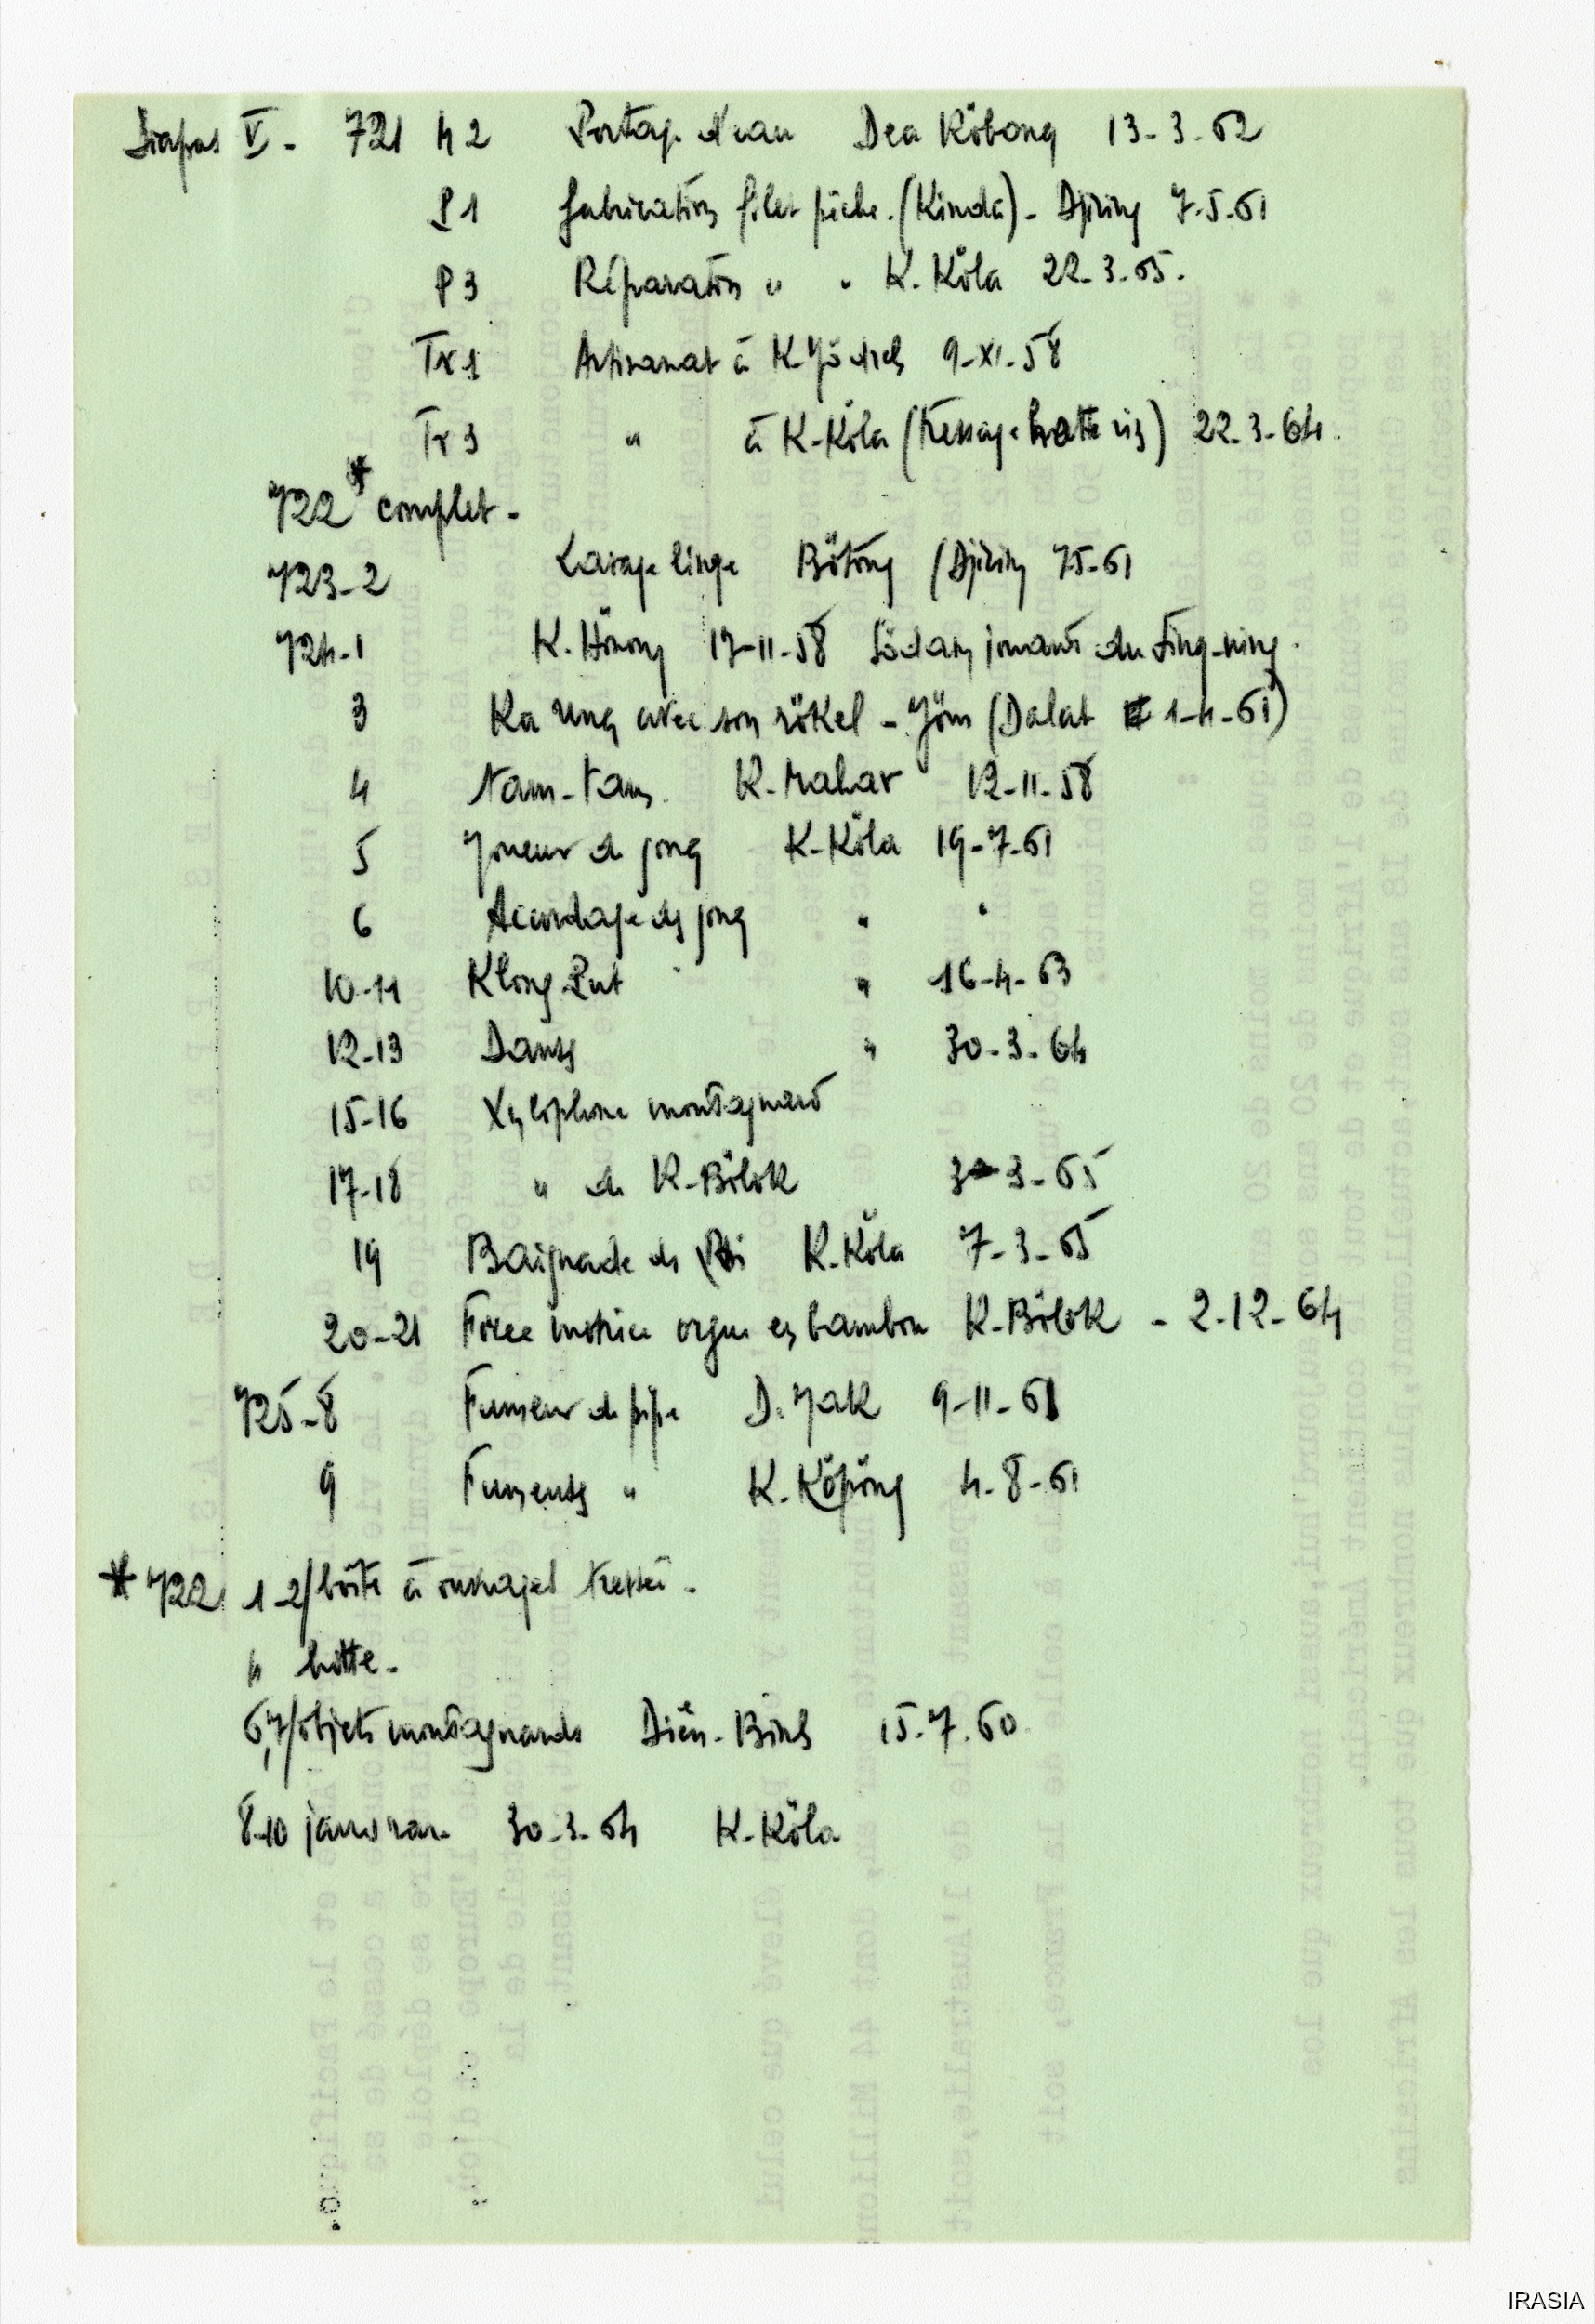 Diapos V - 721 h 2 Portage d'eau Dea Köbong 13-3-62
P1 fabrication filet pêche. (Kinda) - Djiring 7-5-61
P3 Réparation " " K. Köla 22-3-65.
Tr1 Artisanat à K. Yö 9-XI-58
Tr3 " à K-Köla (Tressage hotte) 22-3-64.
722* complet -
723-2 Lavage linge Bötöng (Djiring 7-5-61
724-1 K. Hönong 17-11-58 Södan jouant du Ting-ning.
3 Ka Ung avec son rökel - Jöm (Dalat 1-4-61)
4 tam-tam. K-Mahar 12-11-58
5 Joueur de gong K-Köla 19-7-61
6 Accordage des gong " "
10-11 Klong Put " 16-4-63
12-13 Danses " 30-3-64
15-16 Xylophone montagnard
17-18 " de K-Bölok 3-3-65
19 Baignade de K. Köla 7-3-65
20-21 Force motrice orgue en bambou K-Bölok - 2-12-64
725-8 Fumeur de pipe D. Jak 9-11-61
9 Fumeuses " K. Köpöng 4-8-61
*722 1-2/ boîte à ouvrages tressée -
4 hotte -
6,7/objets montagnards Diên-Binh 15.7.60
8-10 jarres 30-3-64 K-Köla
IRASIA